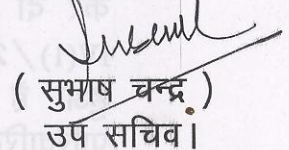 ( सुभाष चन्द्र )
उप सचिव।